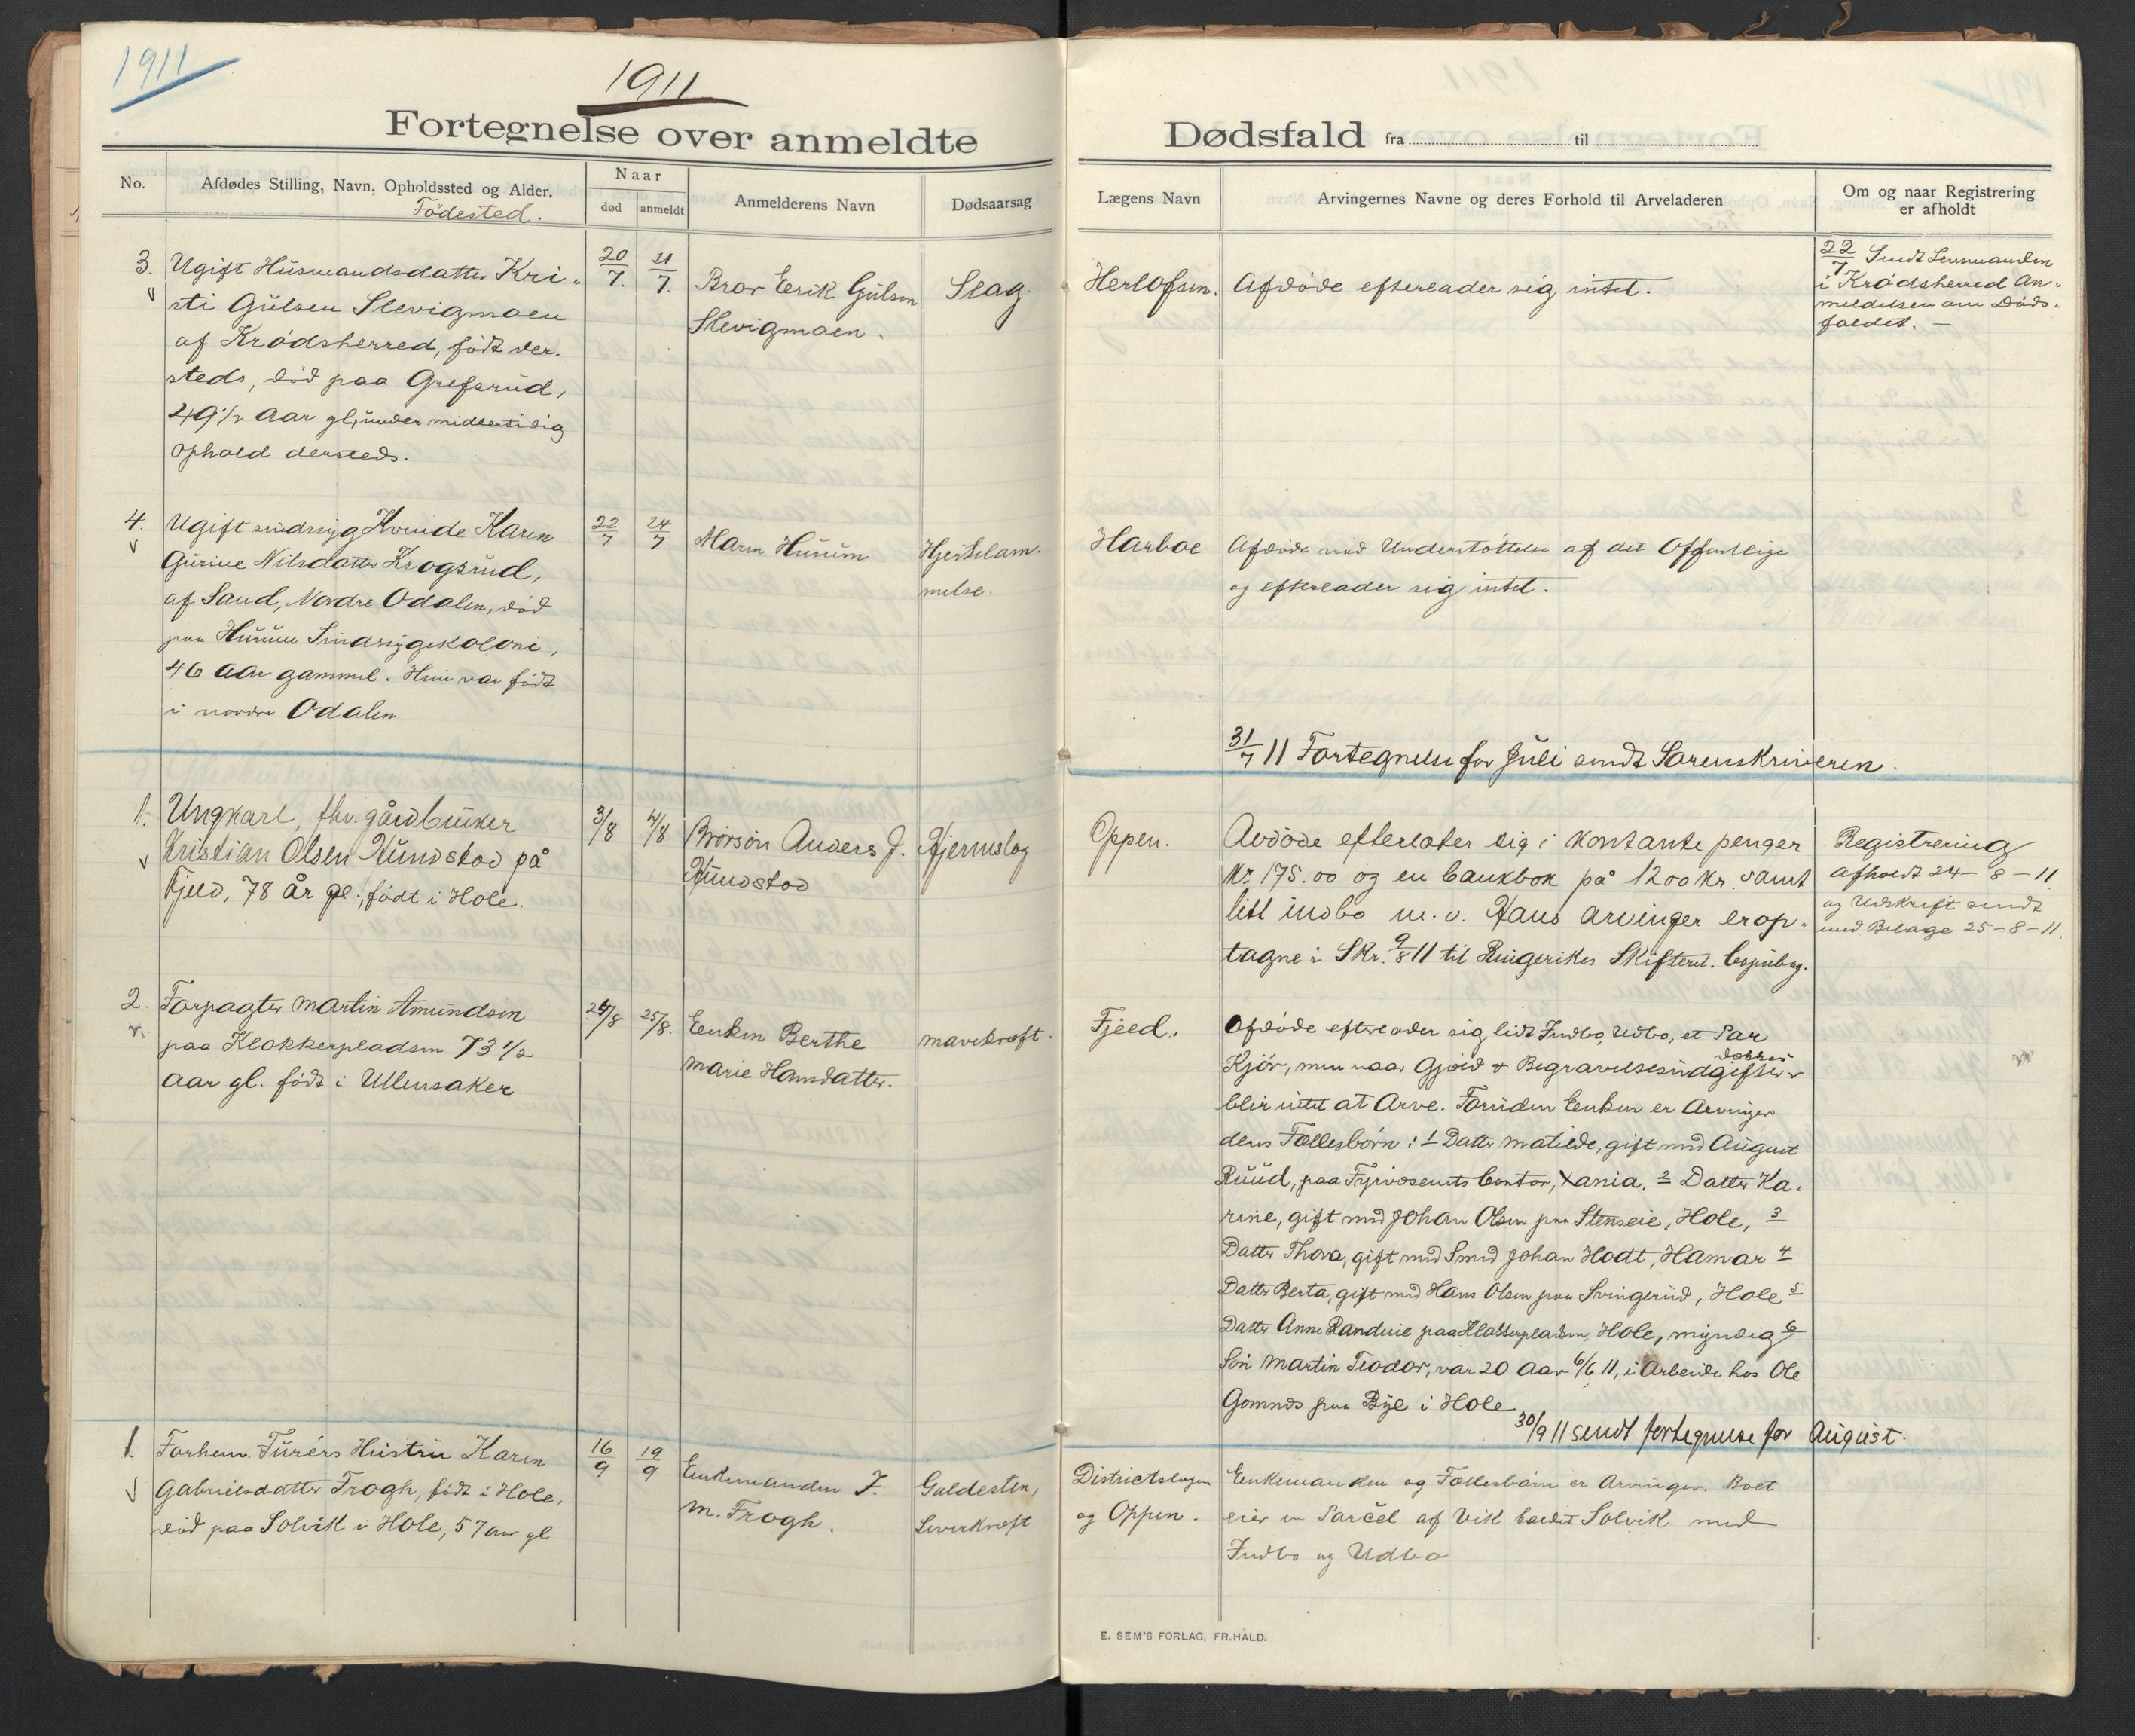 1911
1911
Fortegnelse over anmeldte
Dødsfald fra til
No.
Afdødes Stilling, Navn, Opholdssted og Alder.
Födested.
Naar
død
anmeldt
Anmelderens Navn
Dødsaarsag
Lægens Navn
Arvingernes Navne og deres Forhold til Arveladeren
Om og naar Registrering
er afholdt
3.
Ugift Husmandsdatter Kri-
sti Gulsen Slevigmoen
af Krødsherred, født der-
steds, død paa Grefsrud,
49½ Aar gl, under midlertidig
Ophold dersteds.
20/7.
21/7.
Bror Erik Gulsen
Slevigmoen.
Slag
Herlofsen.
Afdøde efterlader sig intet.
22/7 Sendt Lensmanden
i Krødsherred An-
meldelsen om Døds-
faldet. —
4.
Ugift sindssyg Kvinde Karen
Gurine Nilsdatter Krogsrud,
af Sand, Nordre Odalen, död
paa Hurum Sindssygekoloni,
46 Aar gammel. Hun var født
i nordre Odalen
22/7
24/7
Hurum
Hjertelam-
melse.
Harboe
Afdøde nød Understøttelse af det Offentlige
og efterlader sig intet.
31/7 11 Fortegnelse for Juli sendt Sorenskriveren.
1.
Ungkarl, fhv. gårdbruker
Kristian Olsen Rundstod på
Fjeld, 78 år gl:, født i Hole.
3/8
4/8
Brorsøn Anders J.
Rundstod
Hjerneslag
Oppen.
Avdøde efterlater sig i kontante penger
Kr. 175.00 og en bankbok på 1200 kr. samt
litt indbo m.v. Hans arvinger er op-
tagne i Skr. 9/8 11 til Ringerikes Skifteret. Copiebog.
Registrering
afholdt 24-8-11
og Udskrift sendt
med Bilage 25-8-11.
2.
Forpagter Martin Amundsen
paa Klokkerpladsen 73 ½
Aar gl. født i Ullensaker
24/8
25/8.
Enken Berthe
Marie Hansdatter.
mavekræft.
Fjeld.
Afdøde efterlader sig lidt Indbo, Udbo, et Par
Kjör, men naar Gjæld & Begravelsesudgifter dækkes
blir intet at Arve. Foruden Enken er Arvinger
deres Fællesbørn: 1 Datter Matilde, gift med August
Ruud, paa Fyrvæsenets Contor, Xania. 2 Datter Ka-
rine, gift med Johan Olsen paa Stenseie, Hole, 3
Datter Thora, gift med Smed Johan Hodt, Hamar 4
Datter Berta, gift med Hans Olsen paa Svingerud, Hole 5
Datter Anne Randine paa Klokkerpladsen, Hole, myndig 6
Søn Martin Teodor, var 20 Aar 6/6 11, i Arbeide hos Ole
Gomnæs paa Bye i Hole
30/9 11 sendt fortegnelse for August.
1.
Forhenv. Furérs Hustru Karen
Gabrielsdatter Frogh, født i Hole,
død paa Solvik i Hole, 57 aar gl
16/9
19/9
Enkemanden J.
M. Frogh.
Galdesten,
Leverkræft
Districtslægen
og Oppen.
Enkemanden og Fællesbørn er Arvinger. Boet
eier en Parcel af Vik kaldet Solvik med
Indbo og Udbo
E. SEM'S FORLAG, FR.HALD.